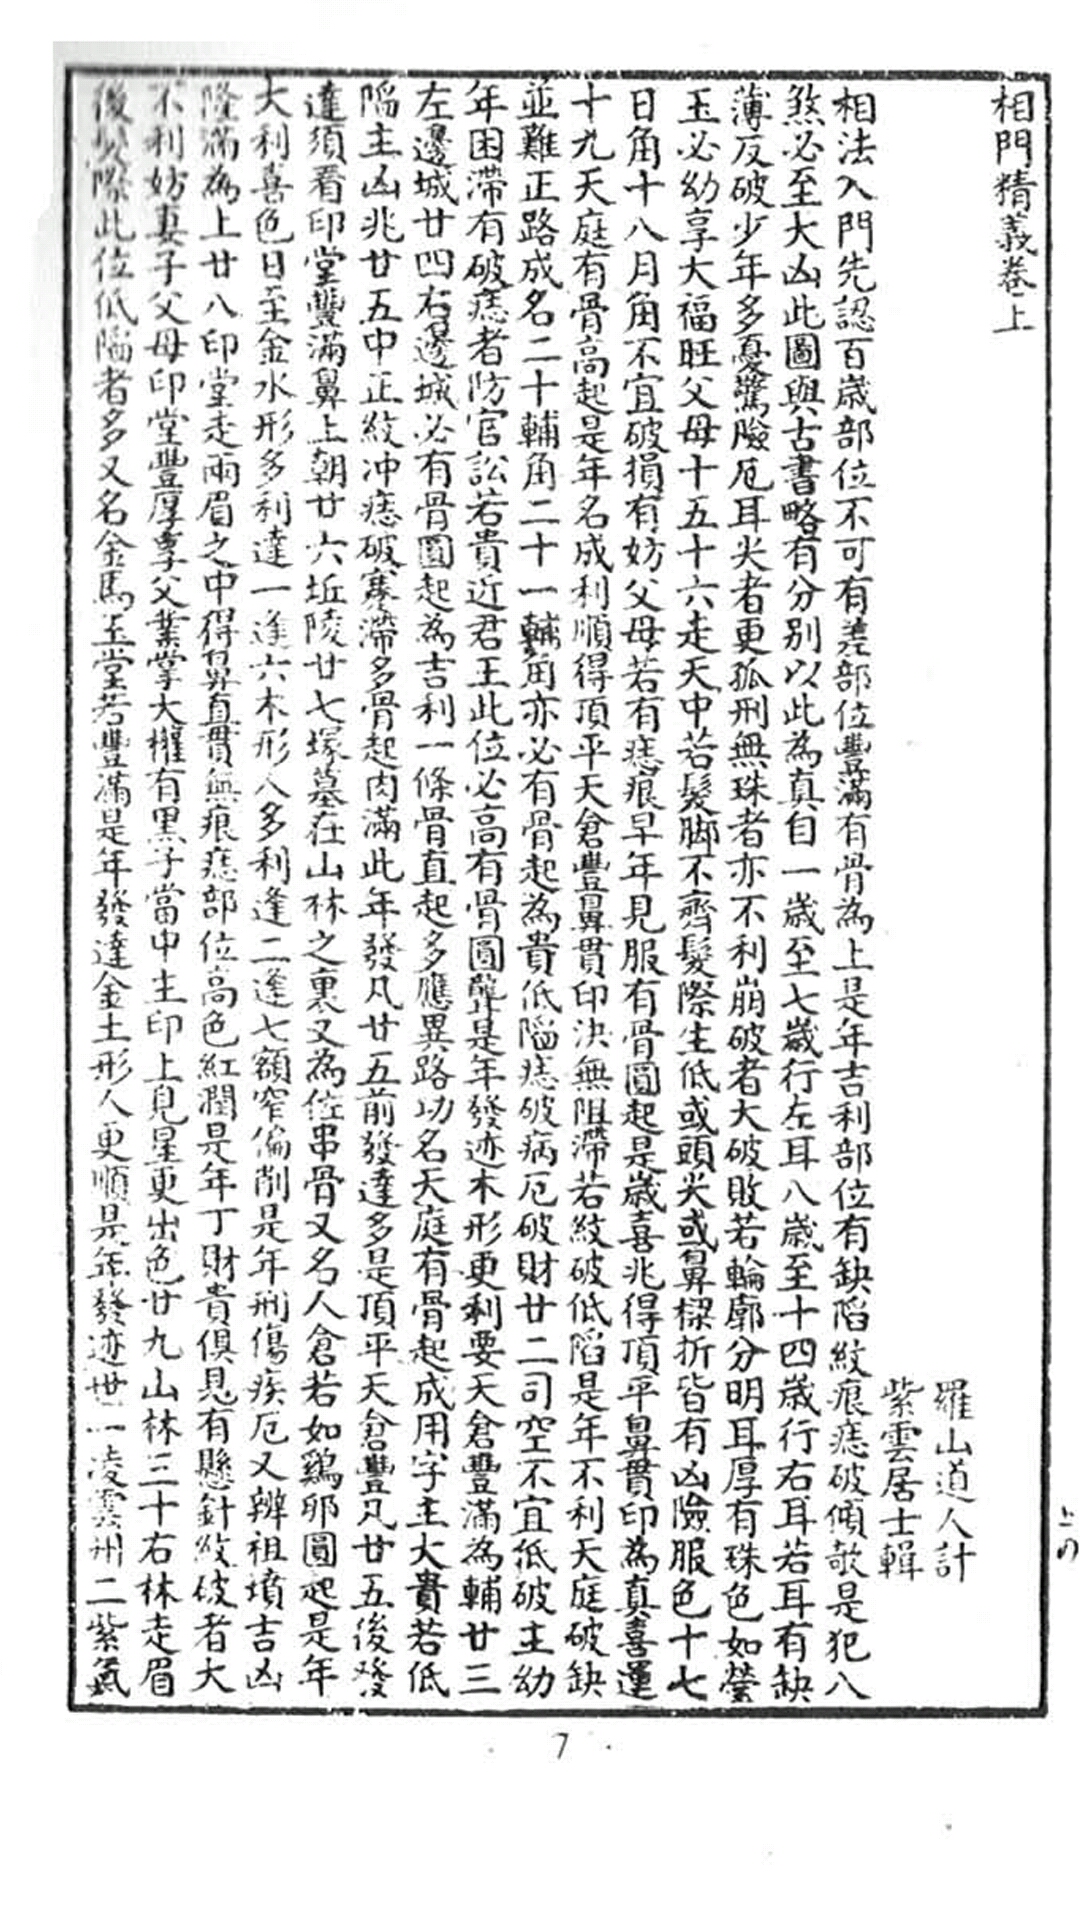 相門精義卷上
羅山道人計
紫雲居士輯
相法入門先認百歲部位不可有差部位豐滿有骨為上是年吉利部位有缺陷紋痕痣破傾欹是犯八
煞必至大凶此圖與古書略有分別以此為真自一歲至七歲行左耳八歲至十四歲行右耳若耳有缺
薄反破少年多憂驚險厄耳尖者更孤刑無珠者亦不利崩破者大破敗若輪廓分明耳厚有珠色如瑩
玉必幼享大福旺父母十五十六走天中若髮脚不齊髮際生低或頭尖或鼻樑折皆有凶險服色十七
日角十八月角不宜破損有妨父母若有痣痕早年見服有骨圓起是歲喜兆得頂平鼻貫印為真喜運
十九天庭有骨高起是年名成利順得頂平天倉豐鼻貫印決無阻滯若紋破低陷是年不利天庭破缺
並難正路成名二十輔角二十一輔角亦必有骨起為貴低陷痣破病厄破財廿二司空不宜低破主幼
年困滯有破痣者防官訟若貴近君王此位必高有骨圓聳是年發迹木形更利要天倉豐滿為輔廿三
左邊城廿四右邊城必有骨圓起為吉利一條骨直起多應異路功名天庭有骨起成用字主大貴若低
陷主凶兆廿五中正紋冲痣破寒滯多骨起肉滿此年發凡廿五前發達多是頂平天倉豐凡廿五後發
達須看印堂豐滿鼻上朝廿六坵陵廿七塚墓在山林之裏又為位串骨又名人倉若如鷄卵圓起是年
大利喜色日至金水形多利達一逢六木形人多利逢二逢七額窄偏削是年刑傷疾厄又辨祖墳吉凶
隆滿為上廿八印堂走兩眉之中得鼻直貫無痕痣部位高色紅潤是年丁財貴俱見有懸針紋破者大
不利妨妻子父母印堂豐厚享父業掌大權有黑子當中主印上見星更出色廿九山林三十右林走眉
後髮際此位低陷者多又名金馬玉堂若豐滿是年發達金土形人更順是年發迹卅一凌雲卅二紫氣
上の
7